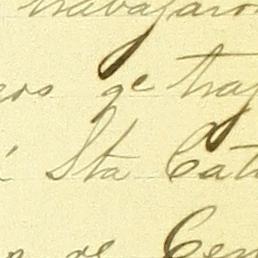 trabajaron
ros qe traj
Sta Cat
de Cen